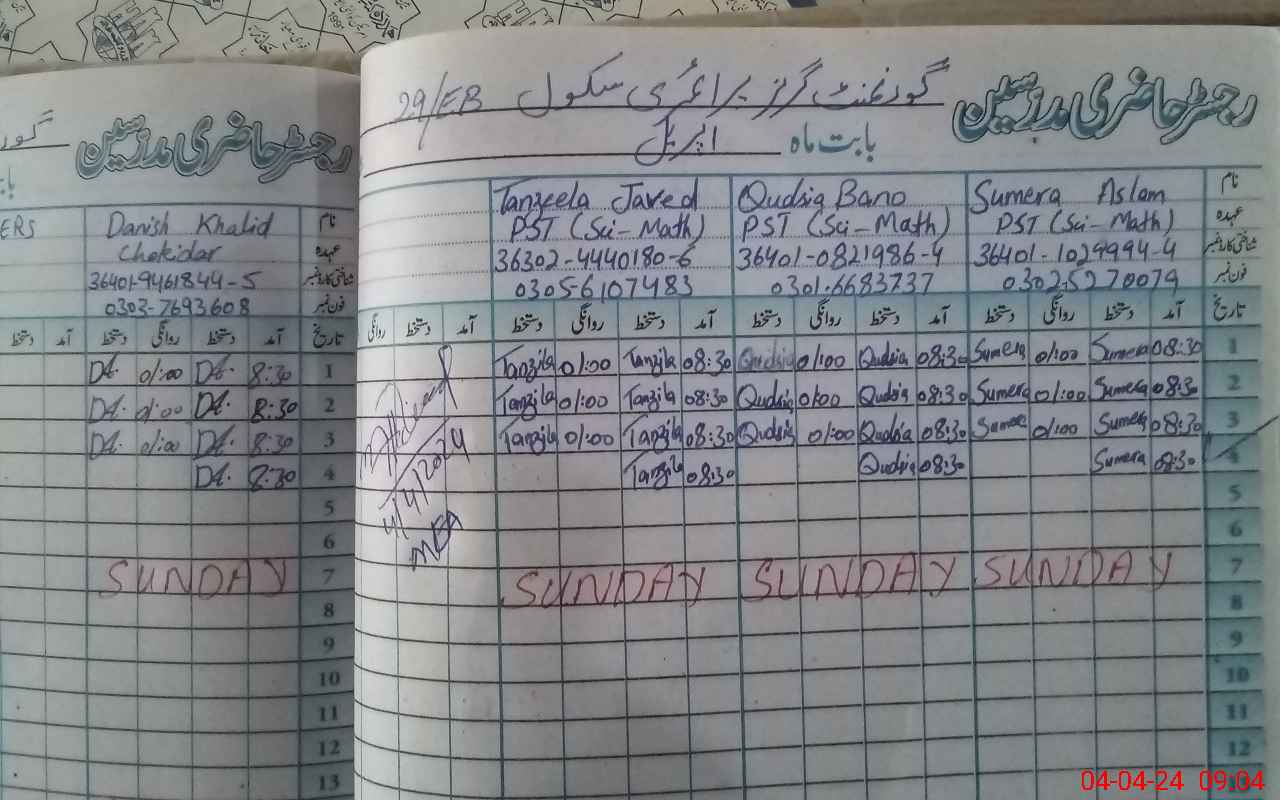 گورنمنٹ گرلز پرائمری سکول 29/EB
رجسٹر حاضری مدرسین
بابت ماہ اپریل
نام Sumera Aslam Qudsia Bano Tanzeela Javed
عہدہ PST (Sci-Math) PST (Sci-Math) PST (Sci-Math)
شناختی کارڈ نمبر 36401-1029994-4 36401-0821986-4 36302-4440180-6
فون نمبر 0302-5270079 0301-6683737 0305-6107483
تاریخ آمد دستخط روانگی دستخط آمد دستخط روانگی دستخط آمد دستخط روانگی دستخط آمد دستخط روانگی
1 08:30 Sumera 01:00 Sumera 08:30 Qudsia 01:00 Qudsia 08:30 Tanzila 01:00 Tanzila
2 08:30 Sumera 01:00 Sumera 08:30 Qudsia 01:00 Qudsia 08:30 Tanzila 01:00 Tanzila
3 08:30 Sumera 01:00 Sumera 08:30 Qudsia 01:00 Qudsia 08:30 Tanzila 01:00 Tanzila
4 08:30 Sumera 08:30 Qudsia 08:30 Tanzila
5
6
7 SUNDAY SUNDAY SUNDAY
8
9
10
11
12
4/4/2024
MEA
رجسٹر حاضری مدرسین
نام Danish Khalid
عہدہ Chokidar ERS
شناختی کارڈ نمبر 36401-9461844-5
فون نمبر 0303-7693608
تاریخ آمد دستخط روانگی دستخط آمد دستخط
1 8:30 DK. 01:00 DK.
2 8:30 DK. 01:00 DK.
3 8:30 DK. 01:00 DK.
4 8:30 DK.
5
6
7 SUNDAY
8
9
10
11
12
13
04-04-24 09:04